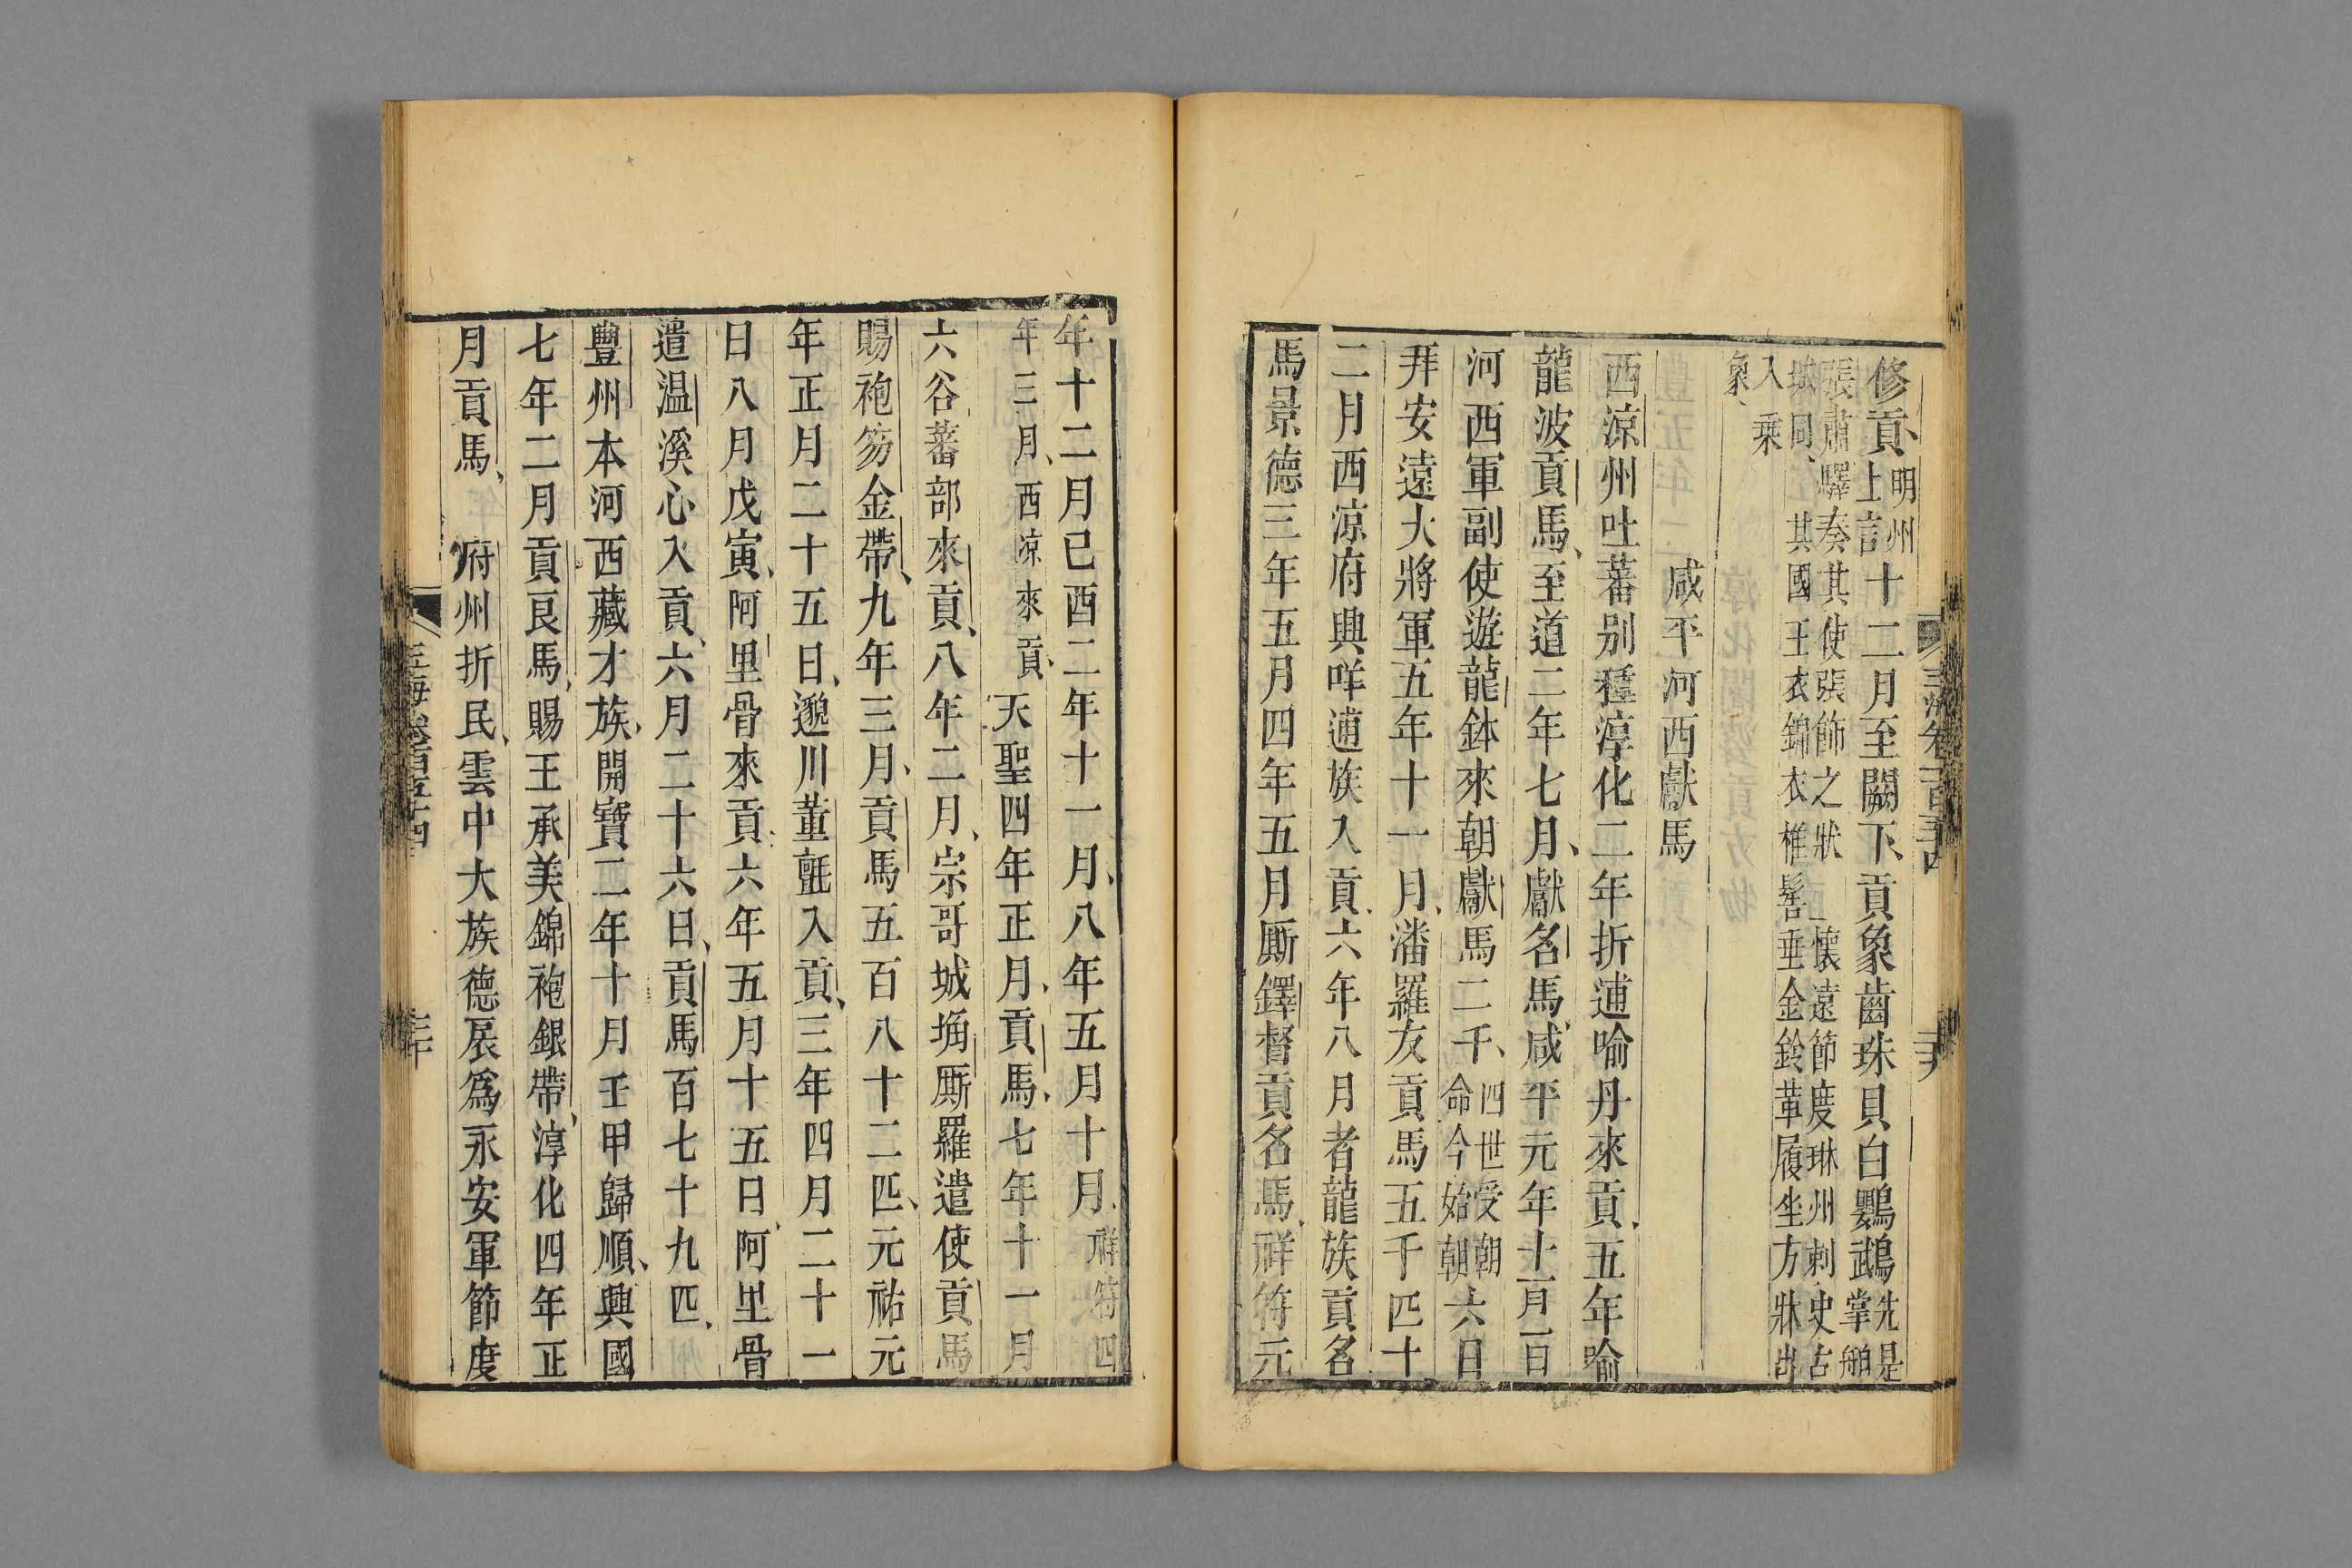 修貢明州上言十二月至闕下貢象齒珠貝白鸚鵡先是掌舶
張肅驛奏其使張飾之狀
懷遠節度琳州刺史占
城同其國王衣錦衣椎髻垂金鈴革履坐方牀出
入乘
象
咸平河西獻馬
西涼州吐蕃別種淳化二年折逋喻丹來貢五年喻
龍波貢馬至道二年七月獻名馬咸平元年十一月一日
河西軍副使遊龍鉢來朝獻馬二千四世受朝命今始朝六日
拜安遠大將軍五年十一月潘羅友貢馬五千匹十
二月西涼府興咩逋族入貢六年八月者龍族貢名
馬景德三年五月四年五月厮鐸督貢名馬祥符元
年十二月己酉二年十一月八年五月十月祥符四
年三月西涼來貢天聖四年正月貢馬七年十一月
六谷蕃部來貢八年二月宗哥城埆厮羅遣使貢馬
賜袍笏金帶九年三月貢馬五百八十二匹元祐元
年正月二十五日邈川董氈入貢三年四月二十一
日八月戊寅阿里骨來貢六年五月十五日阿里骨
遣温溪心入貢六月二十六日貢馬百七十九匹
豐州本河西藏才族開寶二年十月壬甲歸順興國
七年二月貢良馬賜王承美錦袍銀帶淳化四年正
月貢馬 府州折民雲中大族德扆爲永安軍節度
玉海卷一百五十四
三十